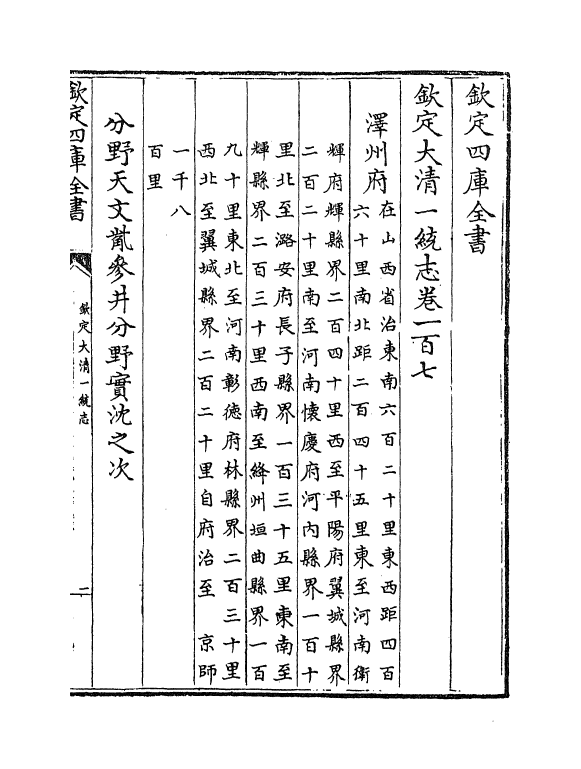 欽定四庫全書
欽定大清一統志卷一百七
澤州府 在山西省治東南六百二十里東西距四百
六十里南北距二百四十五里東至河南衛
輝府輝縣界二百四十里西至平陽府翼城縣界
二百二十里南至河南懷慶府河内縣界一百十
里北至潞安府長子縣界一百三十五里東南至
輝縣界二百三十里西南至絳州垣曲縣界一百
九十里東北至河南彰德府林縣界二百三十里
西北至翼城縣界二百二十里自府治至 京師
一千八
百里
分野天文觜參井分野實沈之次
欽定四庫全書
欽定大清一統志